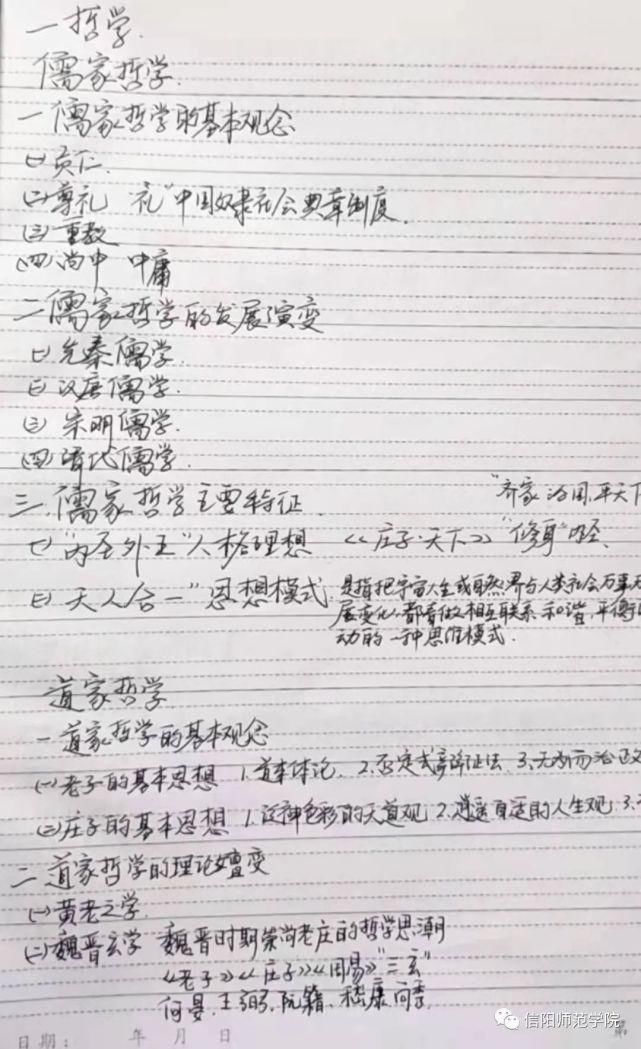 一 哲学.
儒家哲学.
一 儒家哲学的基本观念
(一) 贡仁.
(二) 尊礼 礼"中国奴隶社会典章制度.
(三) 重教
(四) 尚中 中庸
二 儒家哲学的发展演变
(一) 先秦儒学.
(二) 汉唐儒学.
(三) 宋明儒学.
(四) 清代儒学.
三.儒家哲学主要特征 "齐家 治国,平天下
(一) "内圣外王"人格理想 《庄子·天下》"修身"内圣.
(二) 天人合一"思想模式. 是指把宇宙人生或自然界与人类社会万事万
展变化,都看做相互联系,和谐,平衡
动的一种思维模式.
道家哲学
一 道家哲学的基本观念
(一) 老子的基本思想 1.道本体论. 2.否定式辩证法. 3.无为而治
(二) 庄子的基本思想 1.泛神色彩的天道观 2.逍遥自适的人生观 3.
二 道家哲学的理论嬗变
(一) 黄老之学.
(二) 魏晋玄学 魏晋时期崇尚老庄的哲学思潮
《老子》《庄子》《周易》"三玄"
何晏.王弼.阮籍.嵇康.向秀.
日期: 年 月 日 第
信阳师范学院